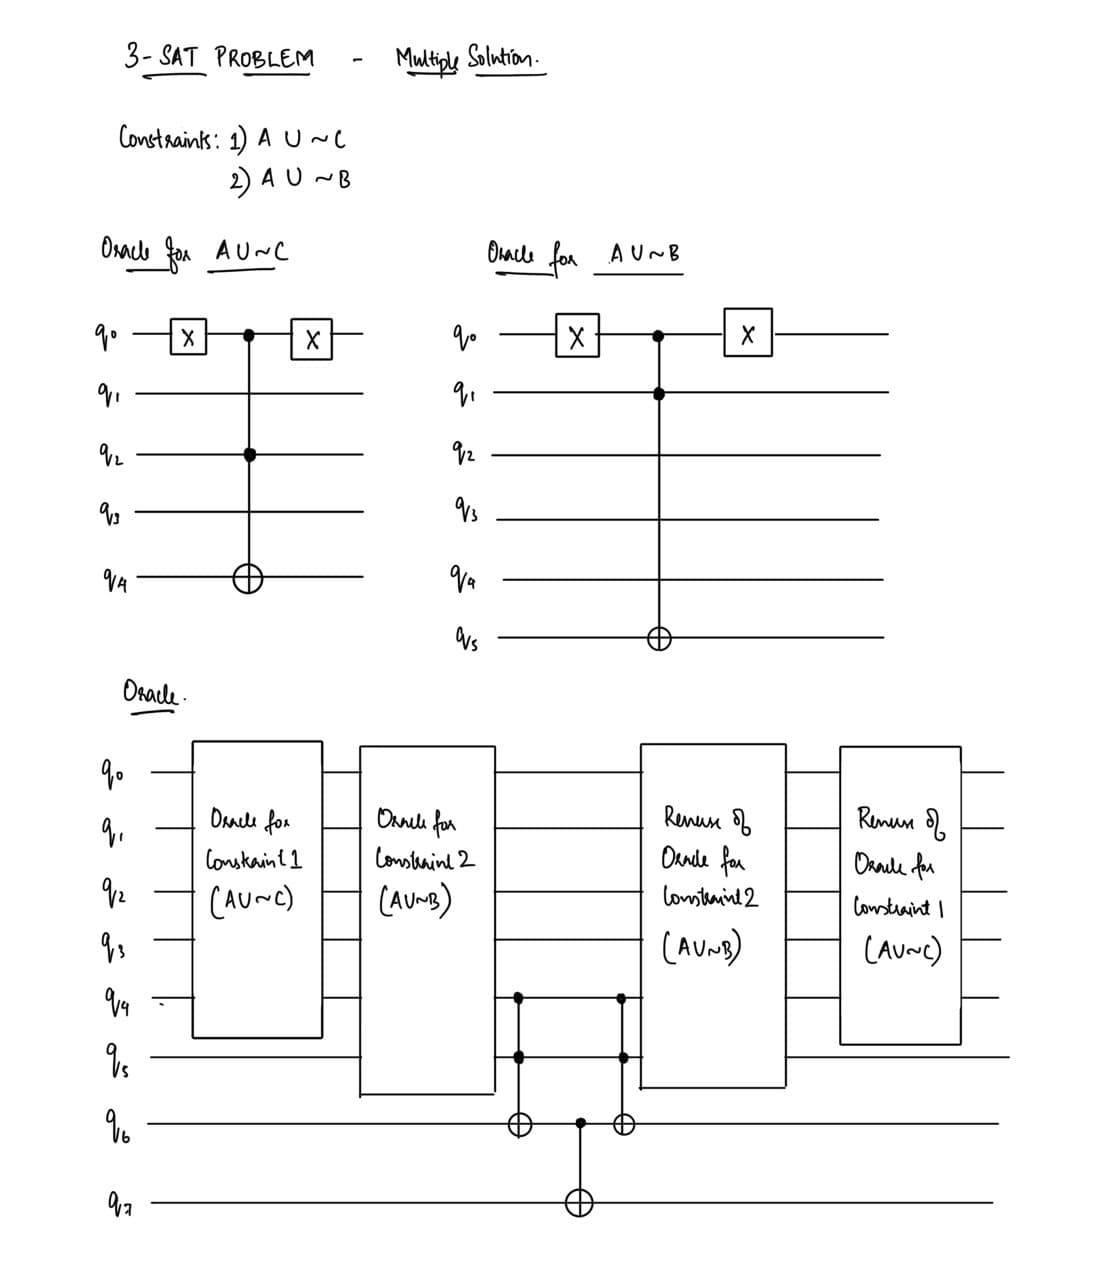 3-SAT PROBLEM - Multiple Solution.
Constraints: 1) A U ~C
2) A U ~B
Oracle for AU~C
Oracle for AU~B
q0 X X
q1
q2
q3
q4
q0 X X
q1
q2
q3
q4
q5
Oracle.
q0
q1
q2
q3
q4
q5
q6
q7
Oracle for
Constraint 1
(AU~C)
Oracle for
Constraint 2
(AU~B)
Reverse of
Oracle for
Constraint 2
(AU~B)
Reverse of
Oracle for
Constraint 1
(AU~C)